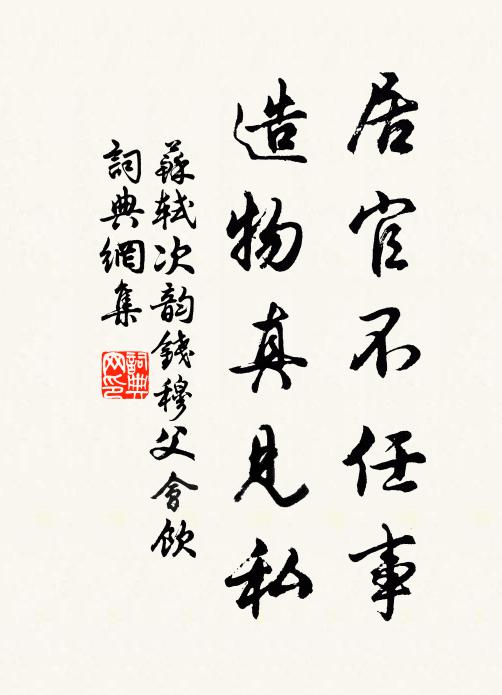 居官不任事
造物真見私
蘇軾次韵錢穆父會飲
詞典網集
詞典網印